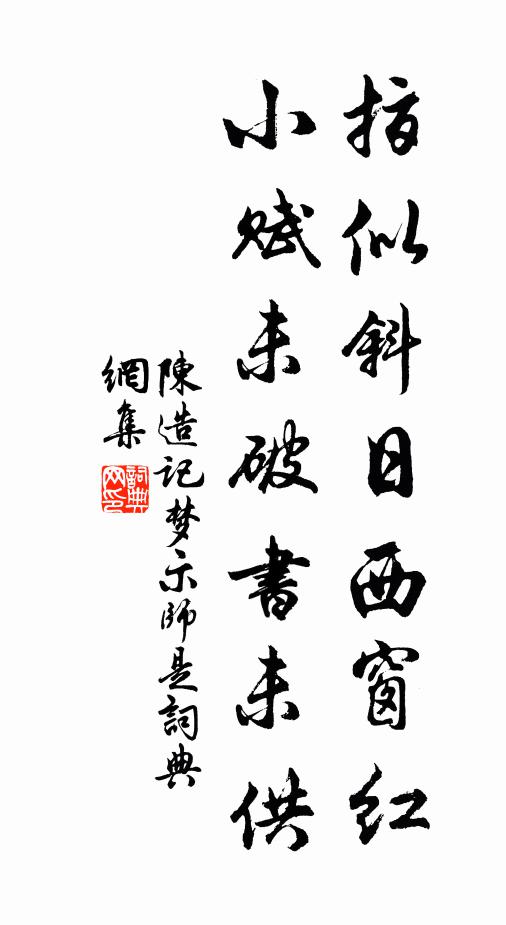 指似斜日西窗红
小赋未破書未供
陳造记梦示師是詞典
網集